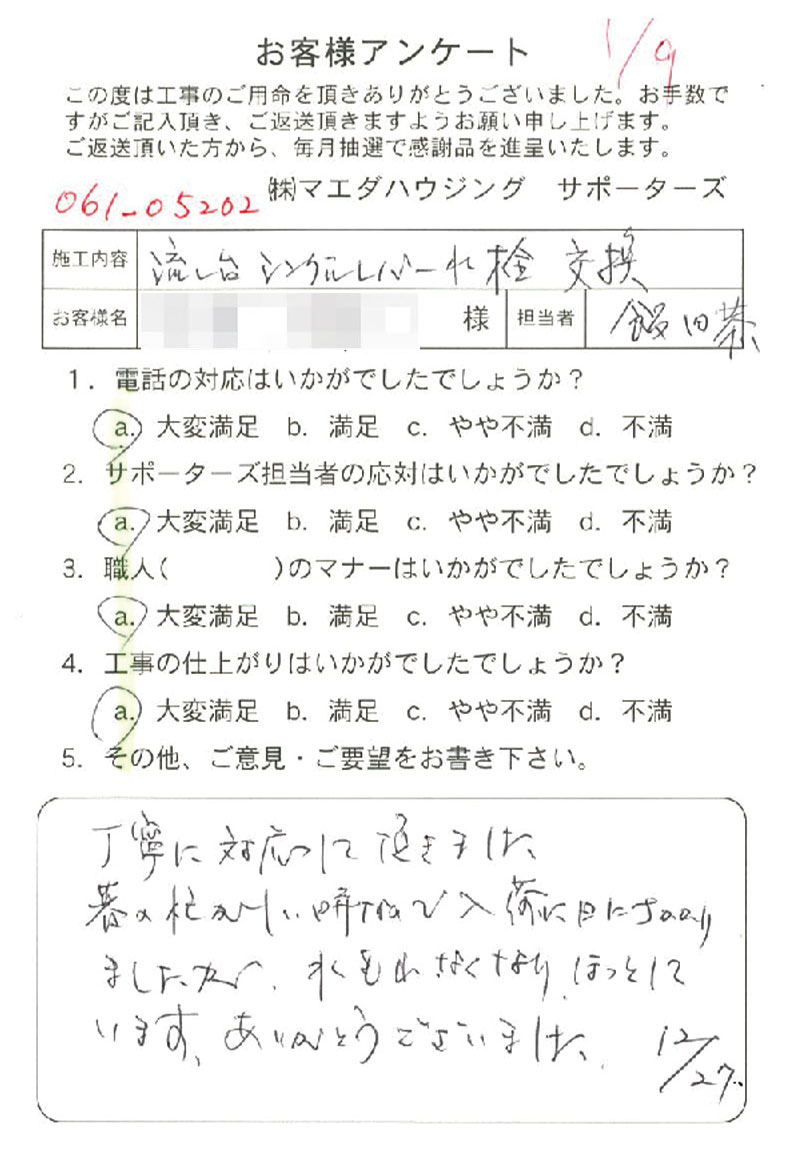 1/9
お客様アンケート
この度は工事のご用命を頂きありがとうございました。お手数で
すがご記入頂き、ご返送頂きますようお願い申し上げます。
ご返送頂いた方から、毎月抽選で感謝品を進呈いたします。
061-05202 ㈱マエダハウジング サポーターズ
施工内容 流し台 シングルレバー水栓 交換
お客様名 様 担当者 飯田恭
1. 電話の対応はいかがでしたでしょうか？
a. 大変満足 b. 満足 c. やや不満 d. 不満
2. サポーターズ担当者の応対はいかがでしたでしょうか？
a. 大変満足 b. 満足 c. やや不満 d. 不満
3. 職人( )のマナーはいかがでしたでしょうか？
a. 大変満足 b. 満足 c. やや不満 d. 不満
4. 工事の仕上がりはいかがでしたでしょうか？
a. 大変満足 b. 満足 c. やや不満 d. 不満
5. その他、ご意見・ご要望をお書き下さい。
丁寧に対応して頂きました
暮の忙がしい時期で入荷に日にちかかり
ましたが、水もれなくなり、ほっとして
います。ありがとうございました。 12/27